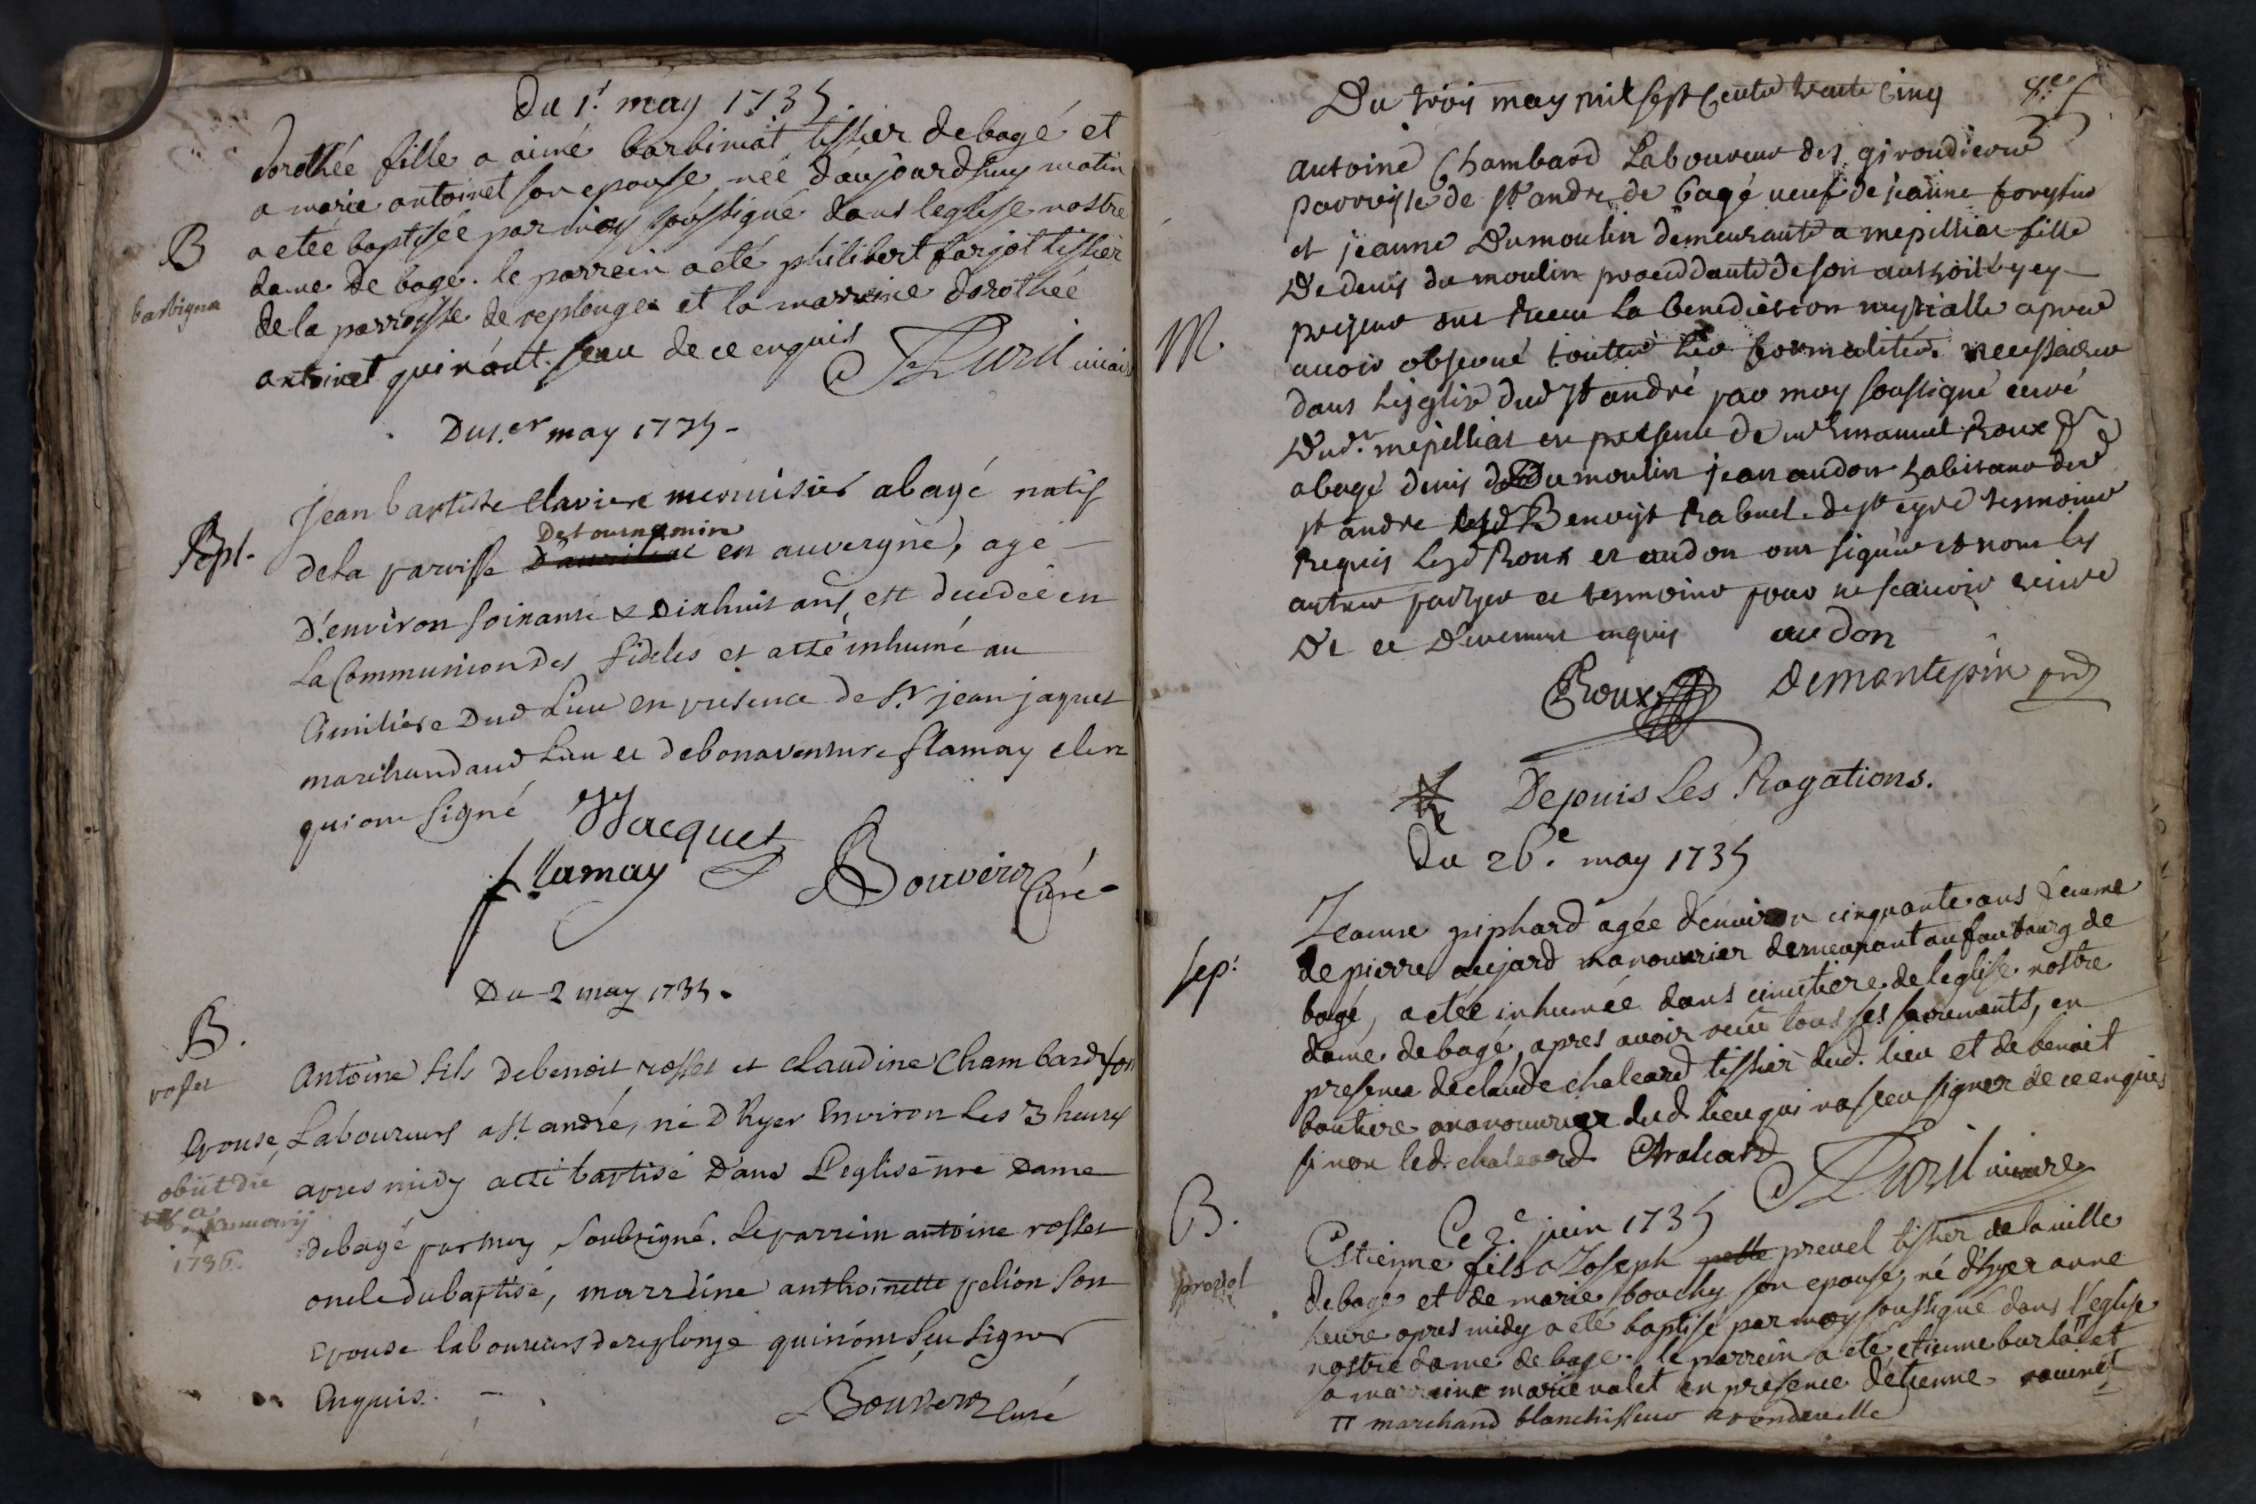 Du 1.r may 1735
dorothée fille a aimé barbimat tissier de bagé et
a marie antoinet son epouse née d'aujourdhuy matin
B
a etée baptisée par moy soussigné dans leglise nostre
dame de bagé. le parrein a eté philibert farjot tissier
barbigna
de la parroisse de replonge et la marreine dorothée
antoinet qui n'ont sceu de ce enquis
vicaire
Du 1.er may 1735 -
Jean baptiste Clavier menuisier a bagé natif
Detournemire
Sept.
de la parroisse en auvergne, agé
D'environ soixante & dixhuit ans est decedé en
La Communion des fideles et a été inhumé au
Cimitiére Dud Lieu en presence de Sr jean jaques
marchand aud Lieu et de bonaventure flamay clerc
qui ont signé
Jacquet
flamay
Bouvier Curé
Du 2 may 1735.
B.
rosset
Antoine fils de benoit rosset et claudine Chambard son
Epouse, Laboureurs a st. andré, né D'hyer Environ les 3 heures
apres midy a été baptisé Dans L'eglise nre Dame
obiit die
januarij
1736.
de bagé par moy soubsigné. Le parrein antoine rosset
oncle du baptisé, marreine anthoinette pelion son
epouse laboureurs de replonge qui n'ont sçu signer
Enquis. -
Bouvier Curé
Du trois may mil sept cents trente cinq
antoine Chambard Laboureur des girondieres
parroisse de st andre de bagé veuf de jeanne forestier
et jeanne Dumoulin demeurante a mepilliat fille
De denis du moulin procedante de son authorité y ey
present ont receu La benediction nuptialle apres
M.
avoir observé toutes Les formalités necessaires
dans L'église dud st andré par moy soussigné curé
Dud. mepilliat en presence de mr Emanuel Roux
a bagé denis Dumoulin jean audon habitant dud
st andre Benoist Rabuel de st cyre temoins
Requis Lesd Roux et audon ont signés et non les
autres parties et temoins pour ne scavoir ecrire
De ce Duement enquis
audon
Roux
Demontepin
Depuis Les Rogations.
Du 26.e may 1735
Jeanne piphard agée d'environ cinquante ans femme
sep.
de pierre aujard manouvrier demeurant au fautbourg de
bagé, a etée inhumée dans cimetiere de leglise nostre
dame de bagé, apres avoir receu tous ses sacrements, en
presence de claude chaleard tissier dud. lieu et de benoit
boutiere manouvrier dud. lieu qui n'a sceu signer de ce enquis
sinon led. chaleard Chaleard
vicaire
B.
Ce 2.e juin 1735
Estienne fils a Joseph prevel tissier de la ville
prevel
de bagé et de marie bouchy son epouse, né d'hyer a une
heure apres midy a eté baptisé par moy soussigné dans l'eglise
nostre dame de bagé. le parrein a eté etienne burlat π et
la marreine marie valet en presence d'etienne
π marchand blanchisseur